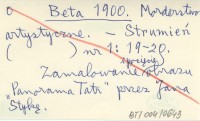 o Beta 1900. Morderstwo
artystyczne. - Strumień
( ) nr 1: 19-20.
Zamalowanie obrazu
"Panorama Tatr" przez Jana
Stykę.
BTT 00410643